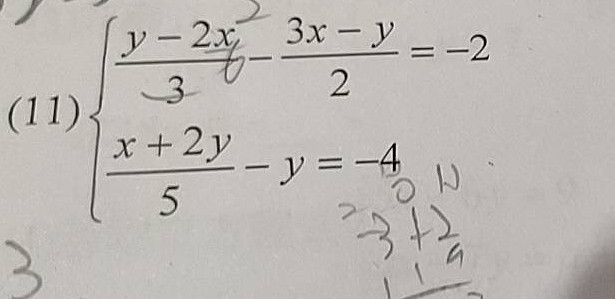 (11) { (y - 2x)/3 - (3x - y)/2 = -2
(x + 2y)/5 - y = -4
3